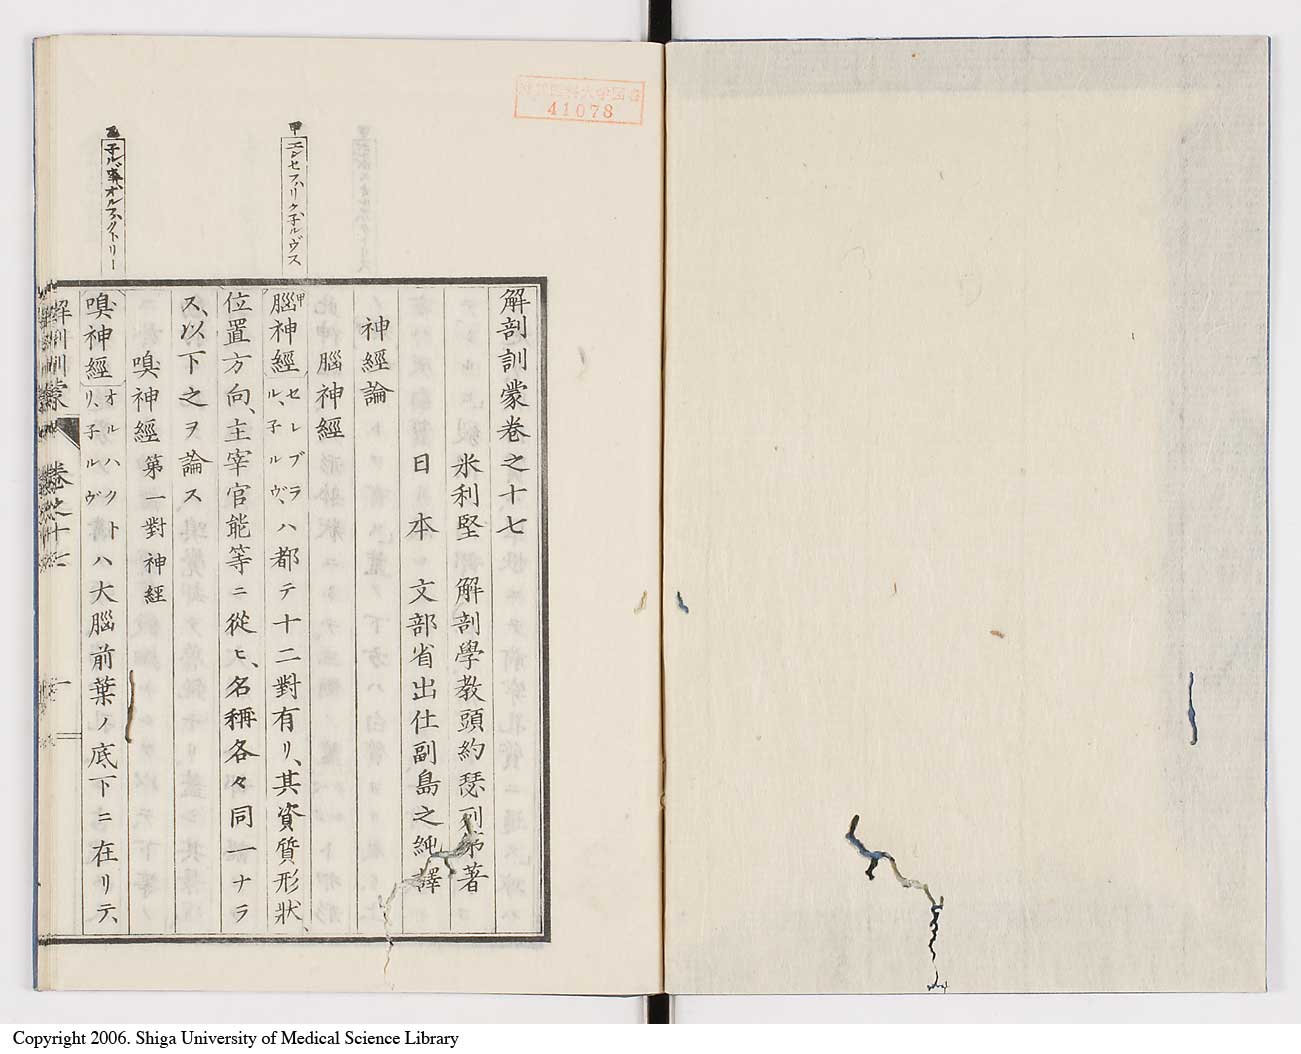 41078
甲 エンセファリクネルヴス
乙 子ルヴ オルファクトリー
解剖訓蒙卷之十七
米利堅 解剖學教頭約瑟列第著
日本 文部省出仕副島之純譯
神經論
腦神經
甲腦神經セレブラル、子ルヴ、ハ都テ十二對有リ、其資質形狀、
位置方向、主宰官能等ニ從ヒ、名稱各々同一ナラ
ス、以下之ヲ論ス
嗅神經 第一對神經
嗅神經オルハクトリ、子ルヴハ大腦前葉ノ底下ニ在リテ、
解剖訓蒙 卷之十七 一
Copyright 2006. Shiga University of Medical Science Library